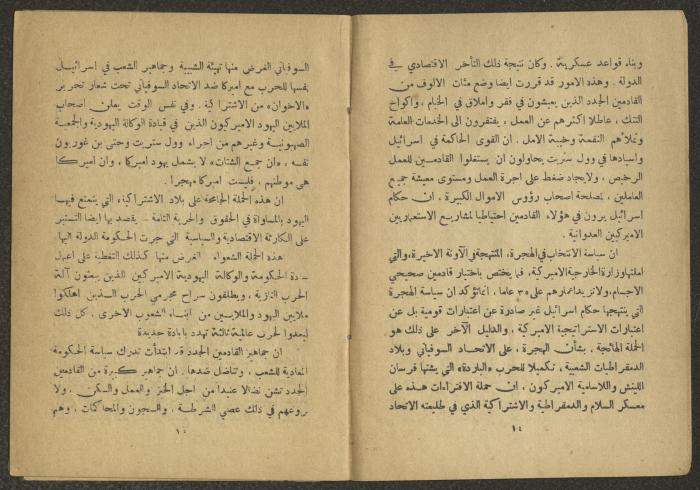 وبناء قواعد عسكرية . وكان نتيجة ذلك التأخر الاقتصادي في
الدولة . وهذه الامور قد قررت ايضا وضع مئات الالوف من
القادمين الجدد الذين يعيشون في فقر واملاق في الخيام ، واكواخ
التنك ، عاطلا اكثرهم عن العمل ، يفتقرون الى الخدمات العامة
وتملأهم النقمة وخيبة الامل . ان القوى الحاكمة في اسرائيل
واسيادها في وول ستريت يحاولون ان يستغلوا القادمين للعمل
الرخيص ، ولايجاد ضغط على اجرة العمل ومستوى معيشة جميع
العاملين ، لمصلحة اصحاب رؤوس الاموال الكبيرة ، ان حكام
اسرائيل يرون في هؤلاء القادمين احتياطيا لمشاريع الاستعماريين
الاميركيين العدوانية .
ان سياسة الانتخاب في الهجرة ، المنتهجة في الآونة الاخيرة ، والتي
املتها وزارة الخارجية الاميركية ، فيما يختص باختيار قادمين صحيحي
الاجسام ، ولا تزيد اعمارهم على ٣٥ عاما ، انما تؤكد ان سياسة الهجرة
التي ينتهجها حكام اسرائيل غير صادرة عن اعتبارات قومية بل عن
اعتبارات الاستراتيجية الاميركية ، والدليل الآخر على ذلك هو
الحملة الهائجة ، بشأن الهجرة ، على الاتحاد السوفياتي وبلاد
الدمقراطيات الشعبية ، تكميلا للحرب «الباردة» التي يشنها فرسان
اللينش واللاسامية الاميركون ، ان حملة الافتراءات هذه على
معسكر السلام والدمقراطية والاشتراكية الذي في طليعته الاتحاد
١٤
السوفياتي الغرض منها تهيئة الشبيبة وجماهير الشعب في اسرائيل
نفسها للحرب مع اميركا ضد الاتحاد السوفياتي تحت شعار تحرير
«الاخوان» من الاشتراكية . وفي نفس الوقت يعلن اصحاب
الملايين اليهود الاميركيون الذين في قيادة الوكالة اليهودية والجمعية
الصهيونية وغيرهم من اجراء وول ستريت وحتى بن غوريون
نفسه ، «ان جمع الشتات» لا يشمل يهود اميركا ، وان اميركا
هي موطنهم ، فليست اميركا مهجرا .
ان هذه الحملة الجامحة على بلاد الاشتراكية ، التي يتمتع فيها
اليهود بالمساواة في الحقوق والحرية التامة - يقصد بها ايضا التستير
على الكارثة الاقتصادية والسياسية التي جرت الحكومة الدولة اليها .
هذه الحملة الشعواء الغرض منها كذلك التغطية على اعمال
قادة الحكومة والوكالة اليهودية الاميركيين الذين يبعثون آلة
الحرب النازية ، ويطلقون سراح مجرمي الحرب الذين اهلكوا
ملايين اليهود والملايين من ابناء الشعوب الاخرى . كل ذلك
ليعدوا لحرب عالمية ثالثة تهدد بابادة جديدة
ان جماهير القادمين الجدد قد ابتدأت تدرك سياسة الحكومة
المعادية للشعب ، وتناضل ضدها . ان جماهير كبيرة من القادمين
الجدد تشن نضالا عنيدا من اجل الخبز والعمل والسكن . ولا
يروعهم في ذلك عصي الشرطة ، والسجون والمحاكمات ، وهم